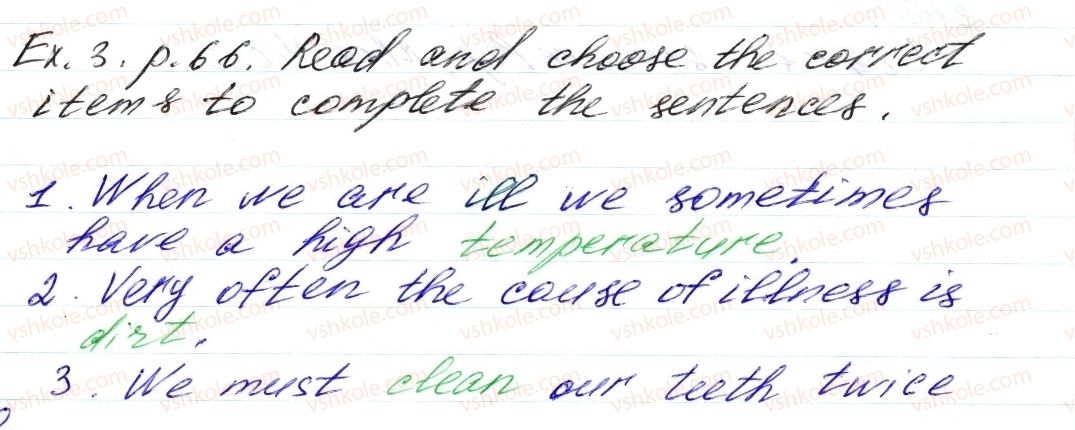 Ex. 3. p. 66. Read and choose the correct
items to complete the sentences.
1. When we are ill we sometimes
have a high temperature.
2. Very often the cause of illness is
dirt.
3. We must clean our teeth twice